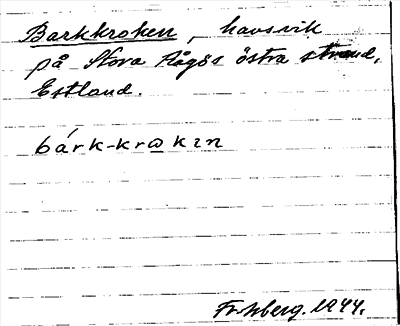 Barkkroken, havsvik
på Stora Rågös östra strand,
Estland.
bárk-krωkın
Fr. Hberg. 1944.